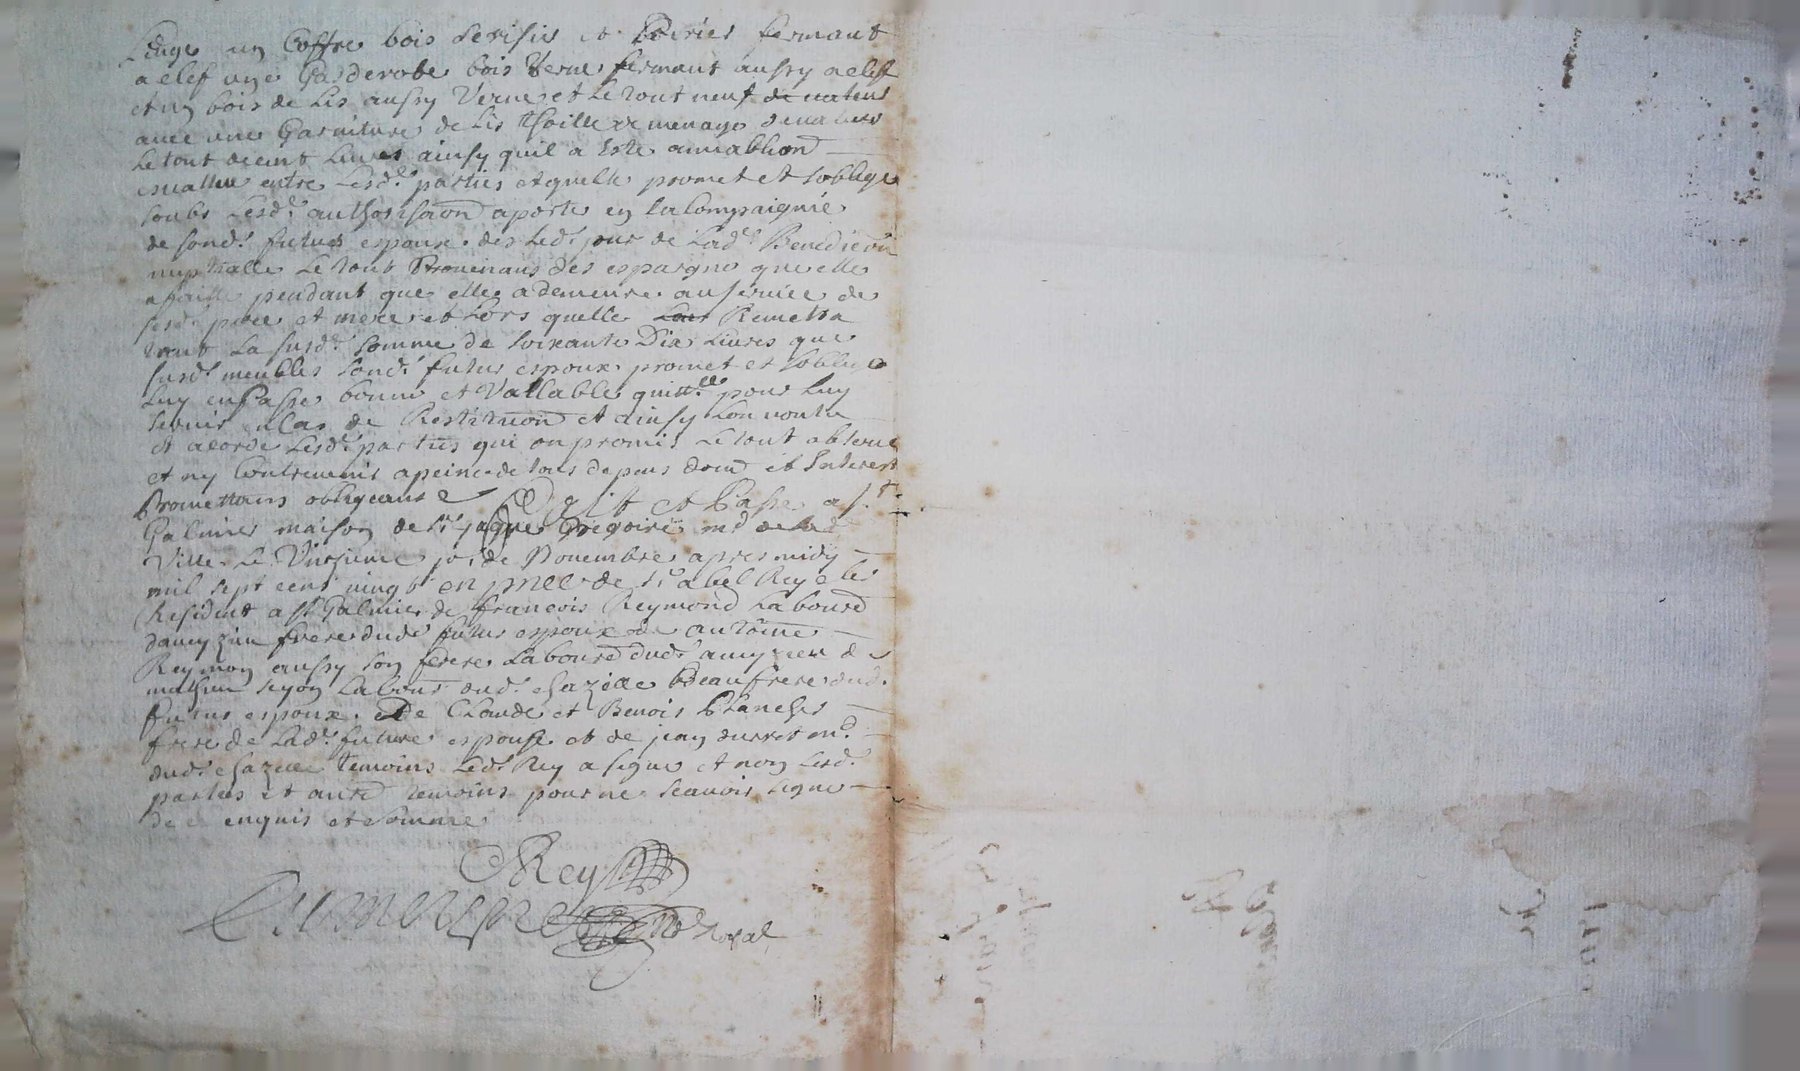 Linge un Coffre bois serisier et Poirier fermant
a clef une Garderobe bois Verne fermant aussy a clef
et un bois de Lis aussy Verne et Le tout neuf
avec une Garniture de Lis thoille de menage
Le tout de cent Livres ainsy quil a Este amiablemd
Esvallue entre Lesd. parties et quelle promet et soblige
soubs Lesd. authorisaon aporte en la Compaignie
de sond. futur espoux. des Led. jour de Lad. Benediction
nuptialle Le tout Provenans des espargne que elle
a faitte pendant que elle a demeure au service de
sesd. pere et mere et Lors quelle Remettra
tant La susd. somme de soixante Dix Livres que
susd. meubles sond. futur espoux promet et soblige
Luy en Passer bonne et Vallable quittce pour Luy
servir en Cas de Restitution et ainsy Lon voulu
et acorde Lesd. parties qui on promis Le tout observe
et ny Contrevenir a peine de tous depens dom et Interest
Promettans obligeans & Fait et Passe a St
Galmier maison de Sr jaque Gregoire md de lad.
Ville Le Vingtieme jor de Novembre apres midy
mil sept cens vingt en pnce de Sr abel Rey
Resident a St Galmier de francois Reymond Laboure
frere dud. futur espoux de antoine
Reymon aussy son frere Laboure dud. de
mathieu Labour dud. chazelle Beaufrere dud.
futur espoux. De Claude et Benois Planches
frere de Lad. future espouse et de jean md.
dud. chazelle temoins Led. Rey a signe et non Lesd.
parties et autre temoins pour ne scavoir signe
de ce enquis et somme
Rey
No Royal